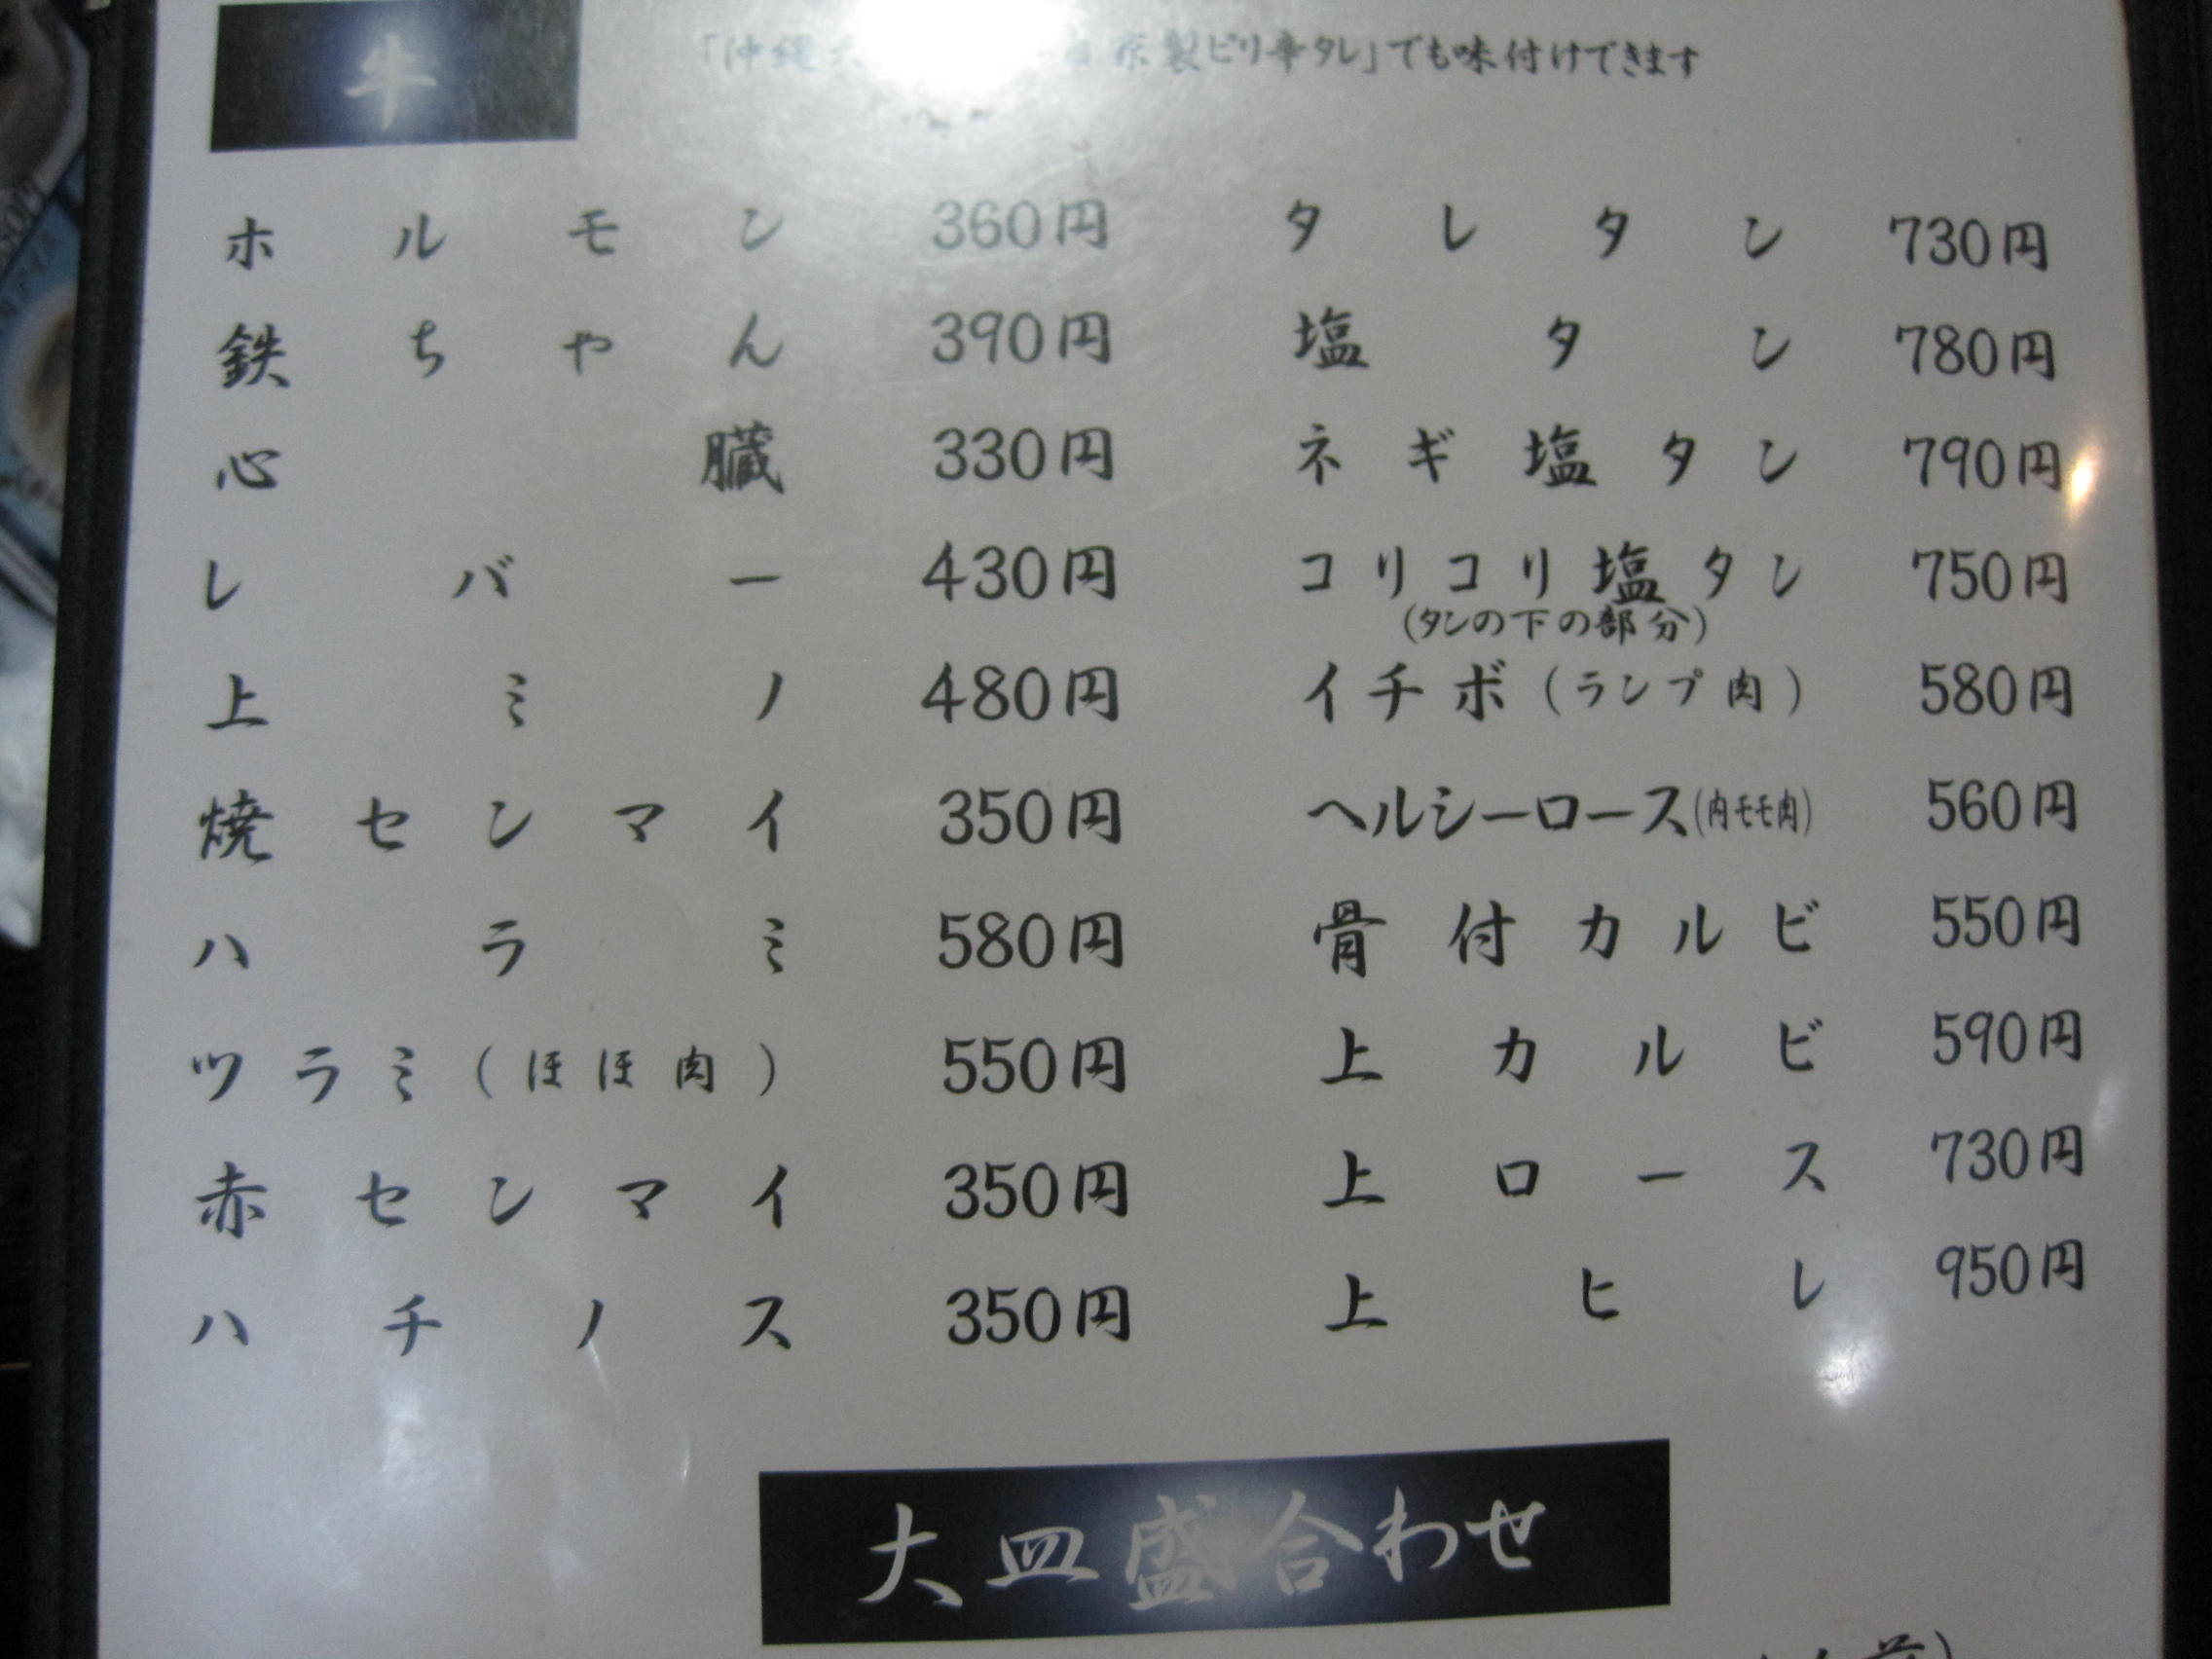 牛
「沖縄 自家製ピリ辛タレ」でも味付けできます
ホルモン 360円
鉄ちゃん 390円
心臓 330円
レバー 430円
上ミノ 480円
焼センマイ 350円
ハラミ 580円
ツラミ(ほほ肉) 550円
赤センマイ 350円
ハチノス 350円
タレタン 730円
塩タン 780円
ネギ塩タン 790円
コリコリ塩タン 750円
(タンの下の部分)
イチボ(ランプ肉) 580円
ヘルシーロース(内モモ肉) 560円
骨付カルビ 550円
上カルビ 590円
上ロース 730円
上ヒレ 950円
大皿盛合わせ